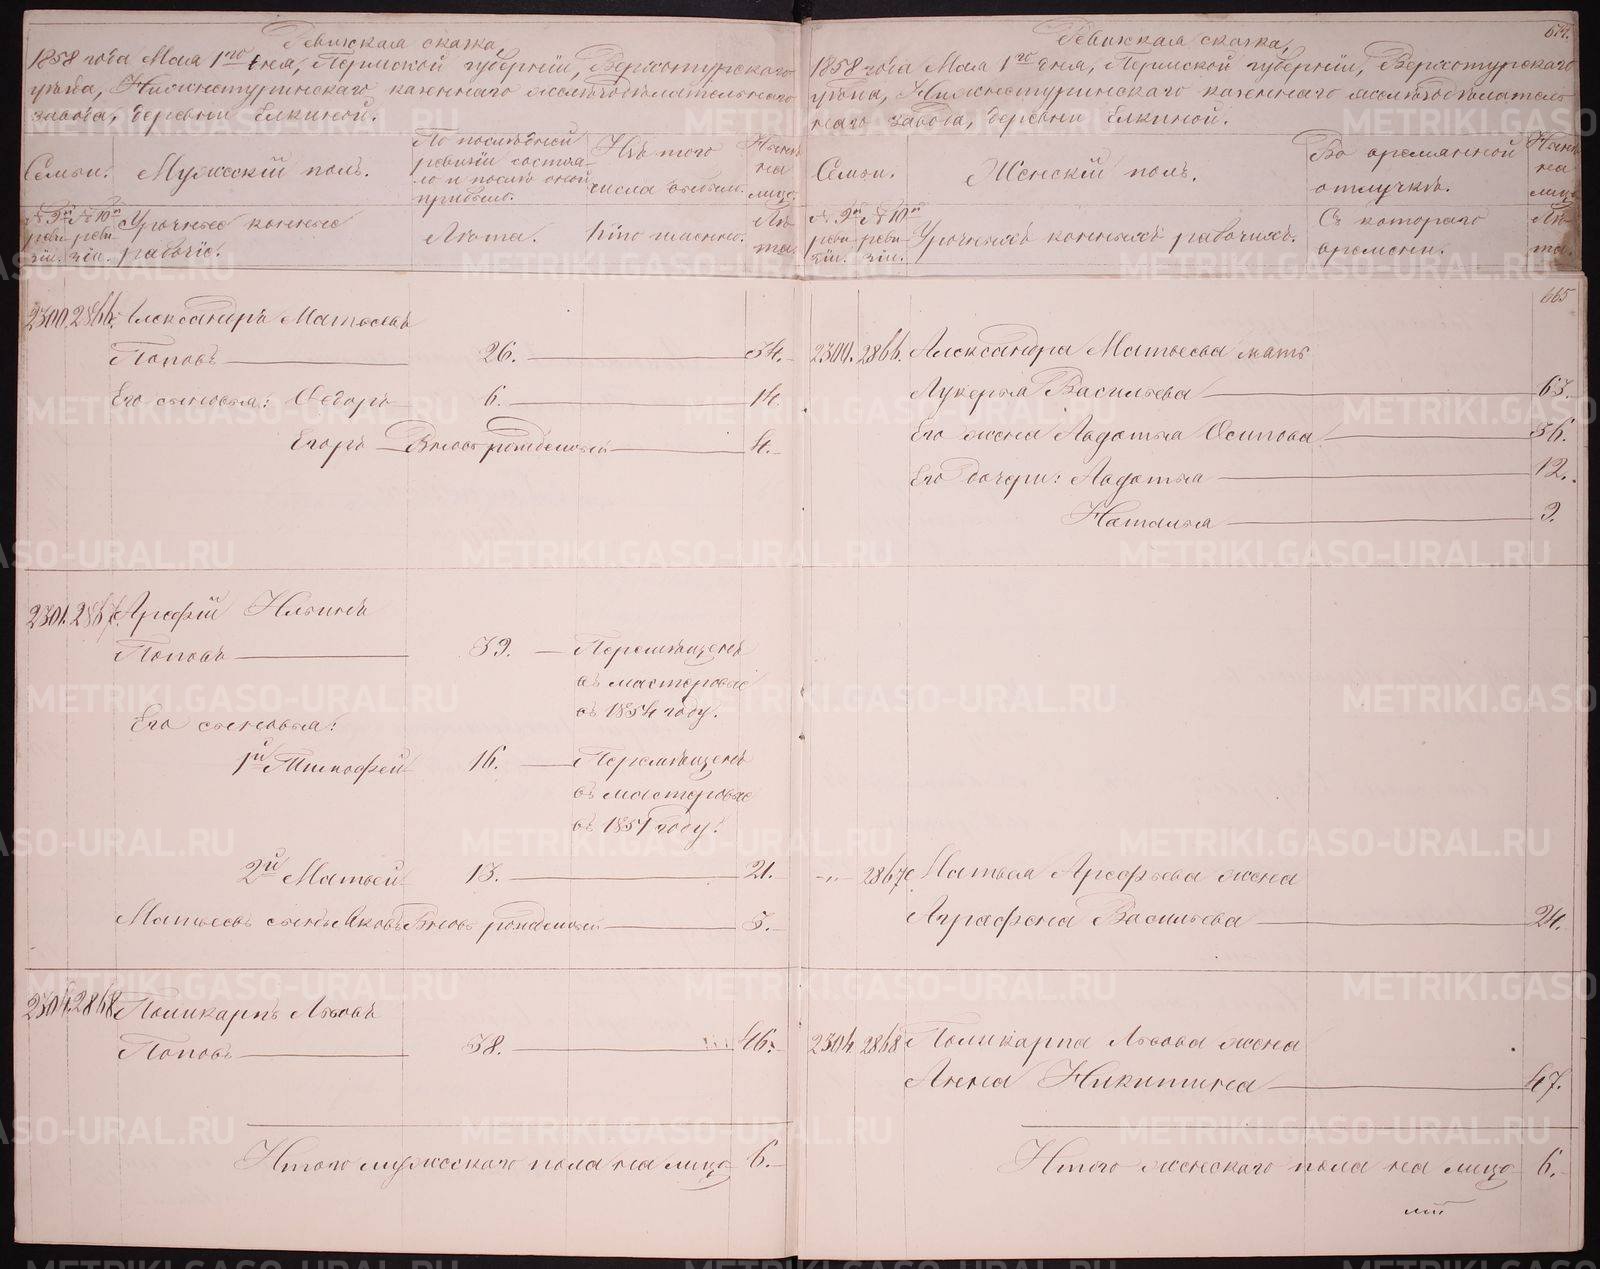 Ревижская сказка,
1858 года Мая 1го дня, Пермской губернiи, Верхотурского
уѣзда, Нижнетуринскаго казеннаго желѣзодѣлательнаго
завода, деревни Елкиной.
Семьи.
Мужескiй полъ.
По послѣдней
ревизiи состоя-
ло и послѣ оной
прибыло.
Изъ того
числа выбыло.
Нынѣ
на
лицо.
№ 9й
реви-
зiи.
№ 10й
реви-
зiи.
Урочные конные
рабочiе.
Лѣта.
Кто именно.
Лѣ-
та.
2300. 2866. Александръ Матвеевъ
Поповъ 26. 34.
Его сыновья: Ѳедоръ 6. 14.
Егоръ Вновь рожденный 4.
2301. 2867. Арефiй Ильинъ
Поповъ 39. Перемѣщенъ
въ мастеровые
въ 1854 году.
Его сыновья:
1й Тимофей 16. Перемѣщенъ
въ мастеровые
въ 1851 году.
2й Матвей 13. 21.
Матвеевъ сынъ Яковъ Вновь рожденный 3.
2304. 2868. Поликарпъ Львовъ
Поповъ 38. 46.
Итого мужескаго пола на лицо 6.
674.
Ревижская сказка,
1858 года Мая 1го дня, Пермской губернiи, Верхотурскаго
уѣзда, Нижнетуринскаго казеннаго желѣзодѣлатель
наго завода, деревни Елкиной.
Семьи.
Женскiй полъ.
Во времянной
отлучкѣ.
Нынѣ
на
лицо.
№ 9й
реви-
зiи.
№ 10й
реви-
зiи.
Урочныхъ конныхъ рабочихъ.
Съ котораго
времени.
Лѣ-
та.
665
2300. 2866. Александра Матвеева мать
Лукерья Васильева 63.
Его жена Авдотья Осипова 36.
Его дочери: Авдотья 12.
Наталья 9.
-"- 2867 Матвея Арефьева жена
Аграфена Васильева 24.
2304. 2868 Поликарпа Львова жена
Анна Никитина 47.
Итого женскаго пола на лицо 6.
METRIKI.GASO-URAL.RU